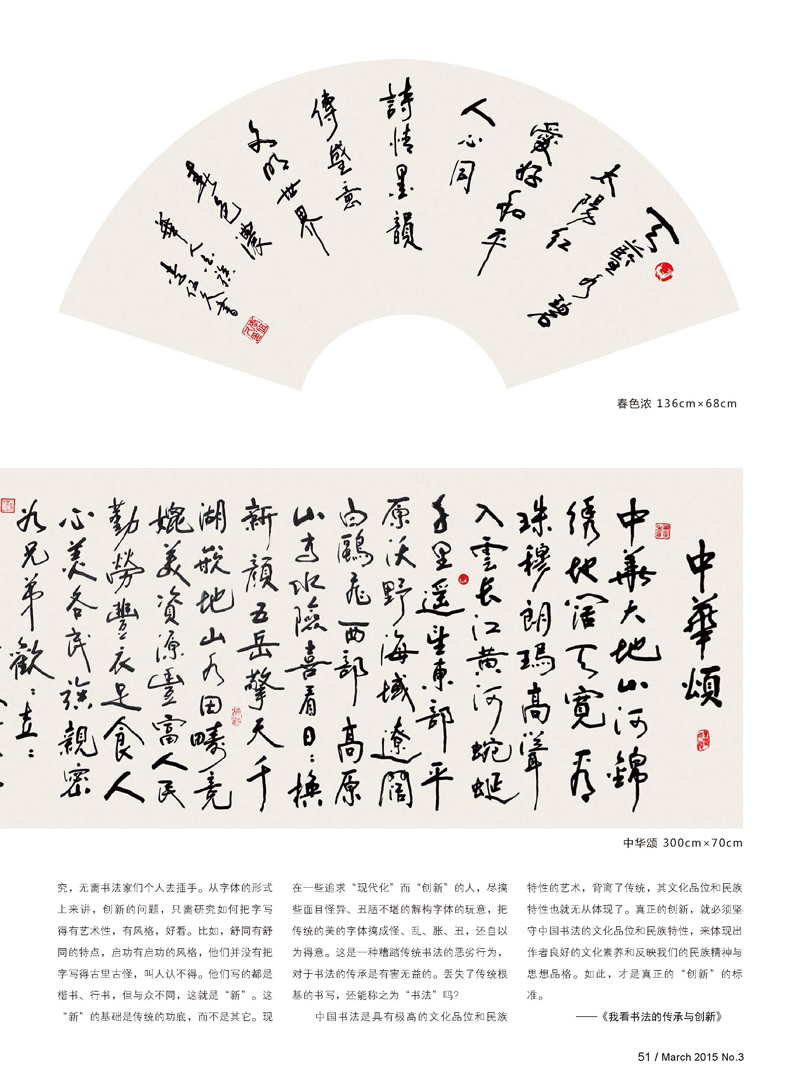 天藍水碧
太陽紅
愛好和平
人心同
詩情墨韻
傳盛意
文明世界
春色濃
春色浓 136cm×68cm
中華頌
中華大地山河錦
绣地阔天寬
珠穆朗瑪高聳
入雲長江黄河蜿蜒
千里遥望東部平
原沃野海域遼闊
白鷗飛西部高原
山高水險喜看日:換
新顔五岳擎天千
湖嵌地山水田疇竞
媲美資源豐富人民
勤勞豐衣足食人
心美各民族親密
如兄弟歡:
中华颂 300cm×70cm
究，无需书法家们个人去插手。从字体的形式
上来讲，创新的问题，只需研究如何把字写
得有艺术性，有风格，好看。比如，舒同有舒
同的特点，启功有启功的风格，他们并没有把
字写得古里古怪，叫人认不得。他们写的都是
楷书、行书，但与众不同，这就是“新”。这
“新”的基础是传统的功底，而不是其它。现
在一些追求“现代化”而“创新”的人，尽搞
些面目怪异、丑陋不堪的解构字体的玩意，把
传统的美的字体搞成怪、乱、胀、丑，还自以
为得意。这是一种糟踏传统书法的恶劣行为，
对于书法的传承是有害无益的。丢失了传统根
基的书写，还能称之为“书法”吗？
中国书法是具有极高的文化品位和民族
特性的艺术，背离了传统，其文化品位和民族
特性也就无从体现了。真正的创新，就必须坚
守中国书法的文化品位和民族特性，来体现出
作者良好的文化素养和反映我们的民族精神与
思想品格。如此，才是真正的“创新”的标
准。
——《我看书法的传承与创新》
51 / March 2015 No.3